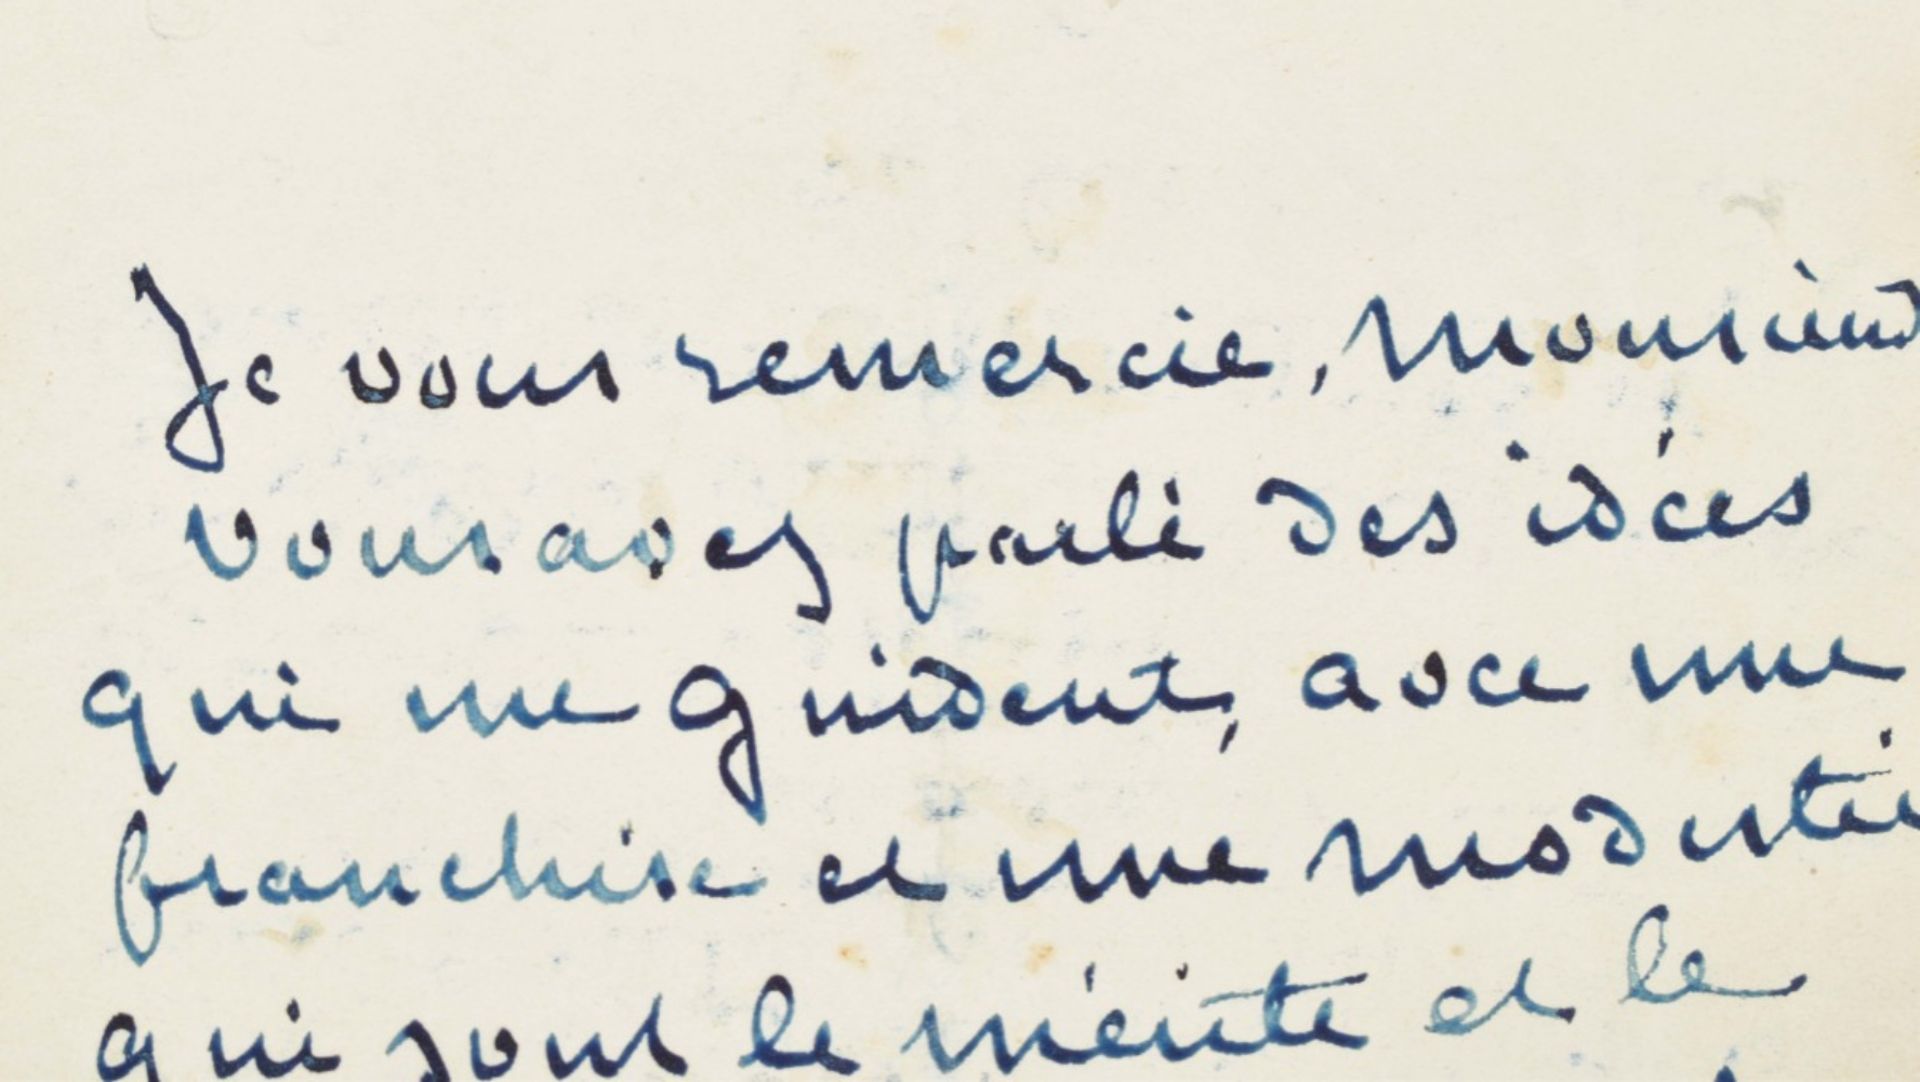 Je vous remercie, Monsieur
Vous avez parlé des idées
qui me guident, avec une
franchise et une modestie
qui sont le mérite et le